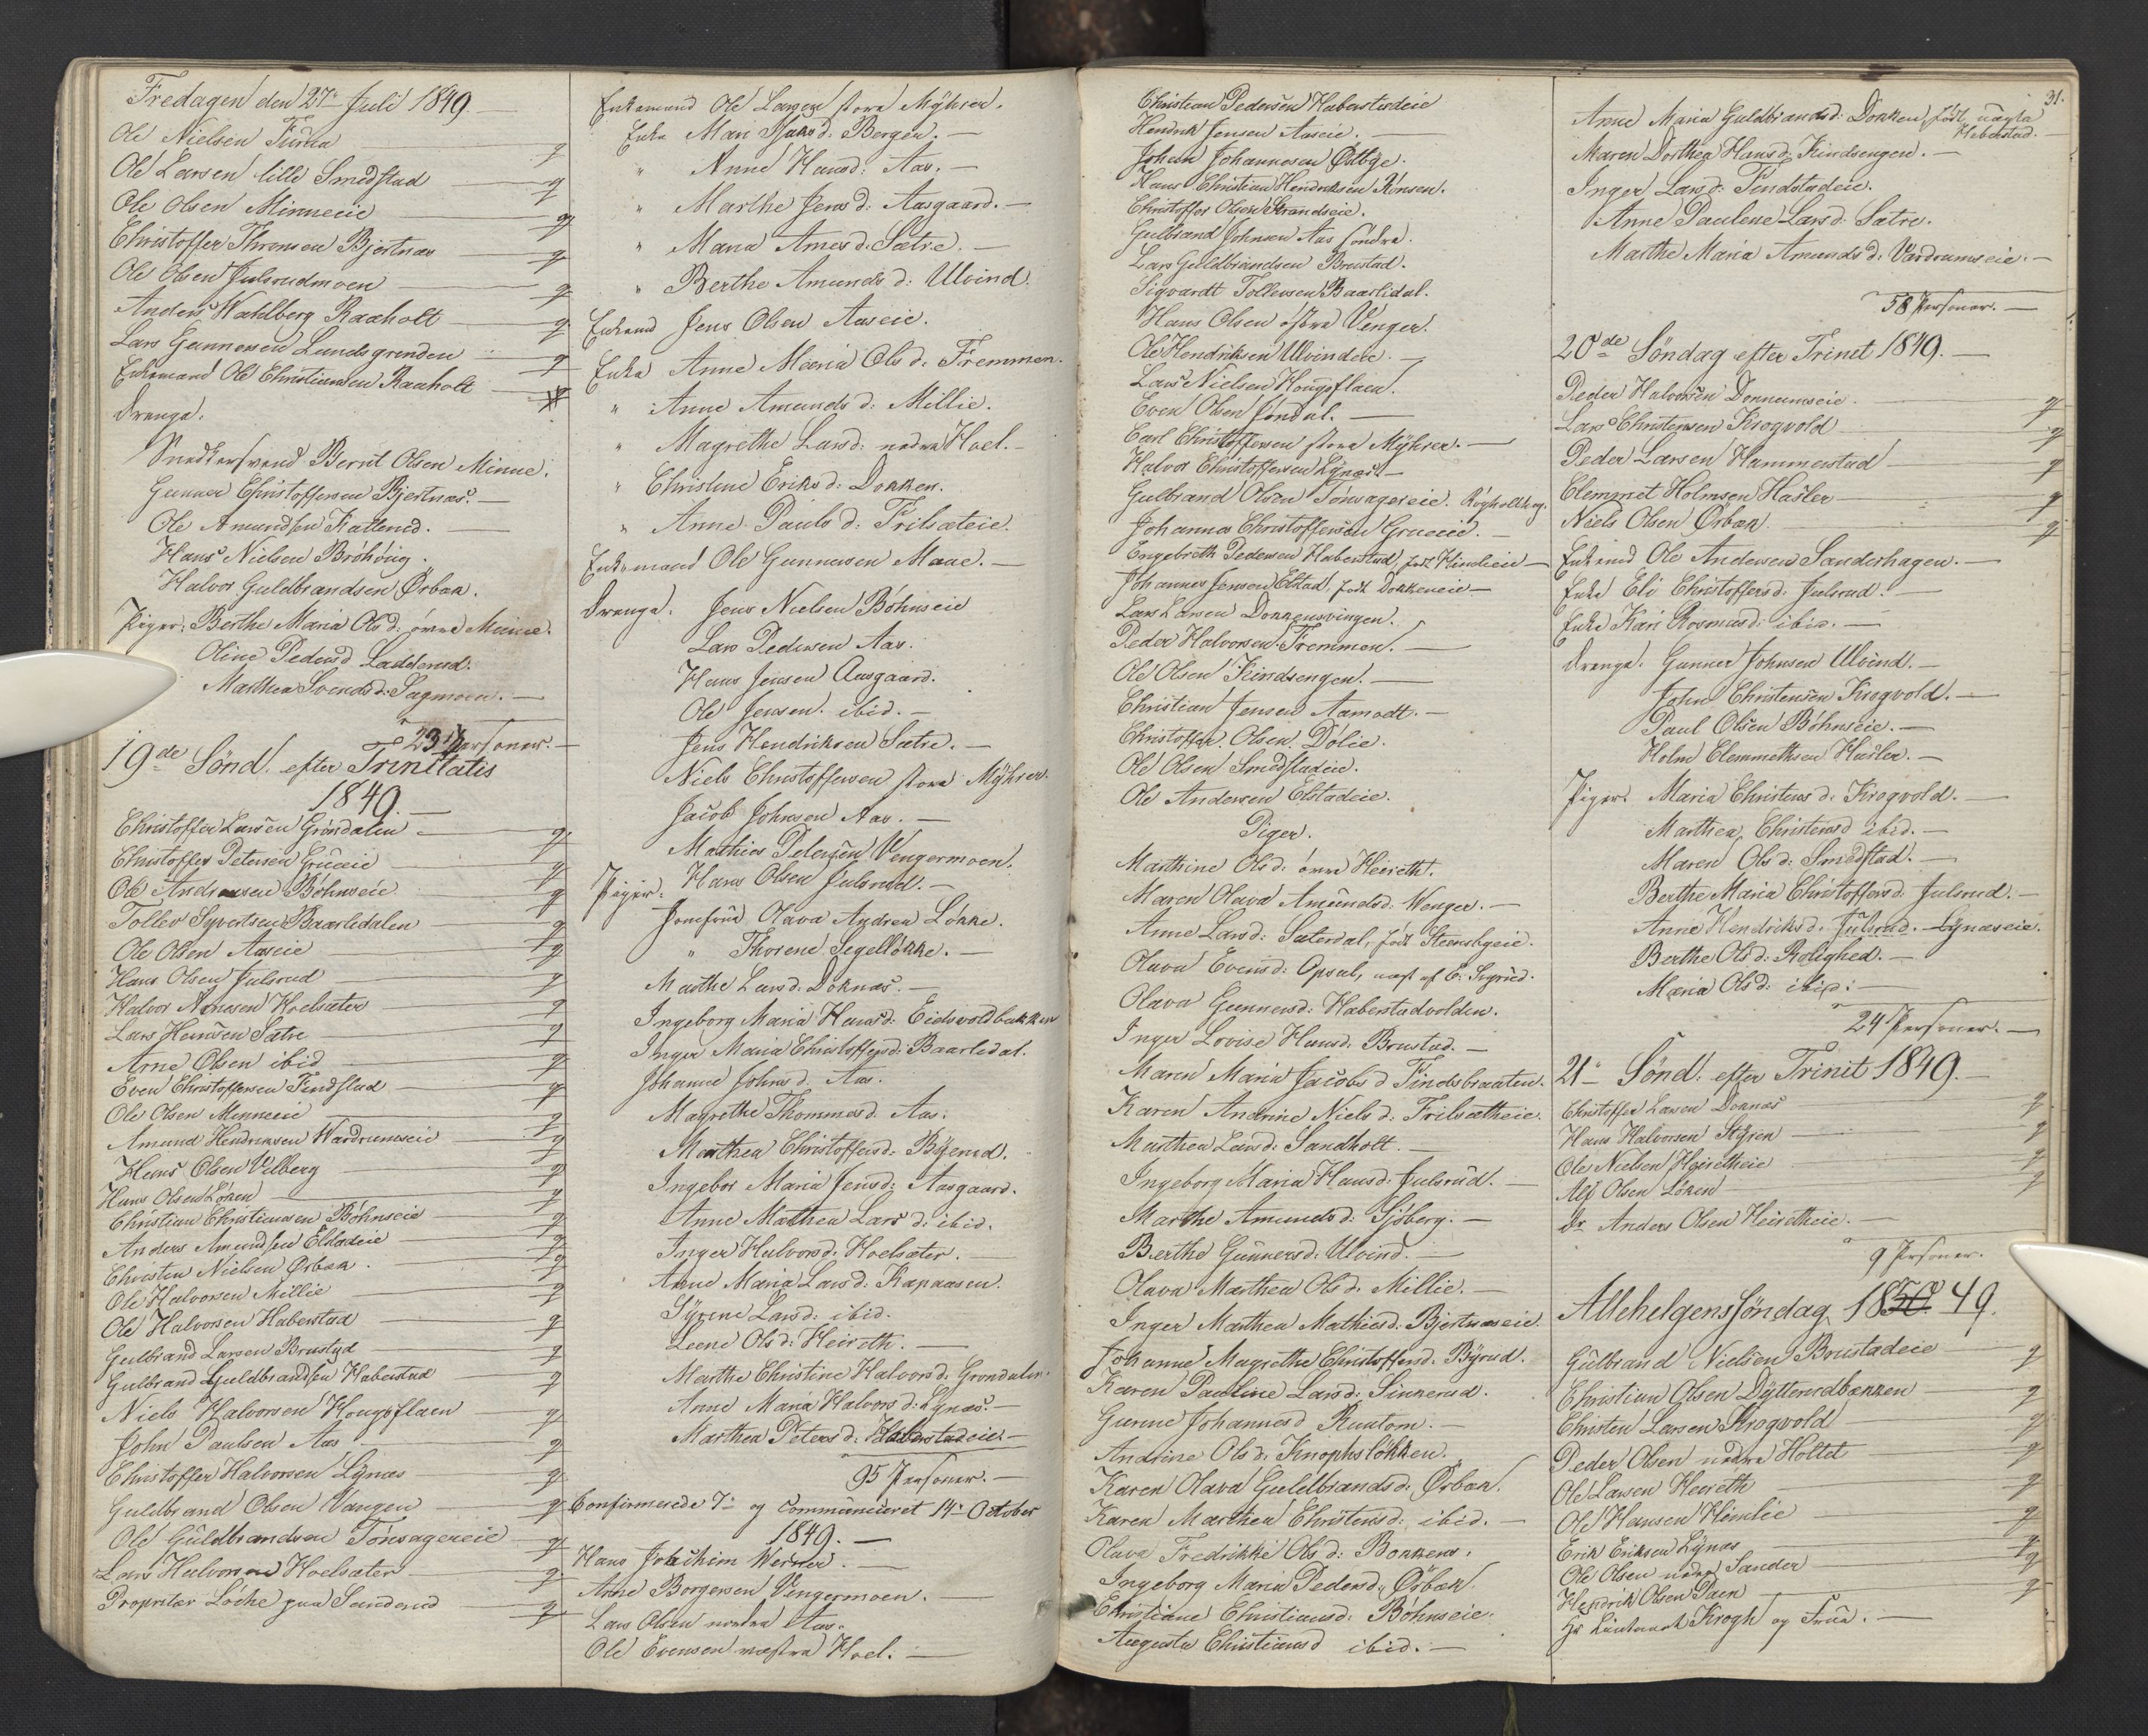 Fredagen den 27de Juli 1849.
Ole Nielsen Furua g
Ole Larsen lille Smedstad g
Ole Olsen Minneeie g
Christoffer Thronsen Bjertnæs g
Ole Olsen Julsrudmoen g
Anders Wahlberg Raaholt g
Lars Gunnersen Lundsgrenden g
Enkemand Ole Christiansen Raaholt
drenge.
Snedkersvend Bernt Olsen Minne.
Gunner Christoffersen Bjertnæs.
Ole Amundsen Katterud.
Hans Nielsen
Halvor Guldbrandsen Ørbæk.
Piger. Berthe Maria Olsd: øvre Minne.
Oline Pedersd Ladderud.
Marthea Svendsd: Sagmoen.
Personer.
19de Sønd. efter Trinitatis
1849.
Christoffer Larsen Grøndalen g
Christoffer Petersen Grueeie g
Ole Andreasen Bøhnseie g
Tollev Syvertsen Baarlidalen g
Ole Olsen Aaseie g
Hans Olsen Julsrud g
Halvor Hansen Hoelsæter g
Lars Hansen Sætre g
Arne Olsen ibid g
Even Christoffersen Findstad g
Ole Olsen Minneeie g
Amund Hendriksen Wardrumseie g
Hans Olsen Vilberg g
Hans Olsen Løken g
Christian Christiansen Bøhnseie g
Anders Amundsen Elstadeie g
Christen Nielsen Ørbæk. g
Ole Halvorsen Millie g
Ole Halvorsen Haberstad g
Gulbrand Larsen Brustad g
Gulbrand Guldbrandsen Haberstad g
Niels Halvorsen Hougsflaen g
John Paulsen Aas g
Christoffer Halvorsen Lynæs g
Guldbrand Olsen Vangen g
Ole Guldbrandsen Tønsagereie g
Lars Halvorsen Hoelsæter g
Proprietær Løche paa Sanderud g
Enkemand Ole Larsen store Myhrer.
Enke Mari Isaksd: Bergen.
" Anne Hansd: Aas.
" Marthe Jensd: Aasgaard.
" Maria Arnesd: Sætre.
" Berthe Amundsd: Ulvind.
Enkemd Jens Olsen Aaseie.
Enke Anne Maria Olsd: Fremmen.
" Anne Amundsd: Millie.
" Magrethe Larsd: nedre Hoel.
" Christine Eriksd: Dokken.
" Anne Paulsd: Trilsæteie.
Enkemand Ole Gunnersen Maae.
drenge. Jens Nielsen Bøhnseie
Lars Pedersen Aas.
Hans Jensen Aasgaard.
Ole Jensen ibid.
Jens Hendriksen Sætre.
Niels Christoffersen store Myhrer.
Jacob Johnsen Aas.
Mathias Petersen Vengermoen.
Hans Olsen Julsrud.
Piger. Jomfrue Olava Andrea Løkke.
" Thorene Segelløkke.
Marthe Larsd: Doknæs.
Ingeborg Maria Hansd: Eidsvoldbakken
Inger Maria Christoffersd: Baarlidal.
Johanne Johnsd. Aas.
Magrethe Thommasd. Aas.
Marthea Christoffersd: Byrud.
Ingebor Maria Jensd: Aasgaard.
Anne Mathea Larsd: ibid.
Inger Halvorsd: Hoelsæter.
Anne Maria Larsd: Kapaasen.
Syrene Larsd: ibid.
Leene Olsd: Heireth.
Marthe Christine Halvorsd. Grøndalen.
Anne Maria Halvorsd: Lynæs.
Marthea Petersd: Haberstadeie.
95 Personer.
Confirmerede 7de og Communiceret 14de October
1849.
Hans Joachim Werner.
Anne Borgersen Vengermoen.
Lars Olsen nordre Aas.
Ole Evensen vestre Hoel.
Christian Pedersen Haberstadeie
Hendrik Jensen Aaseie.
Johan Johannesen Østbye.
Hans Christian Hendriksen Rønsen.
Christoffer Olsen Strandseie.
Gulbrand Johnsen Aas søndre.
Lars Guldbrandsen Brustad.
Sigvardt Tollevsen Baarlidal.
Hans Olsen østre Venger.
Ole Hendriksen Ulvindeie.
Lars Nielsen Hougsflaen.
Even Olsen Jøndal.
Carl Christoffersen store Myhrer.
Halvor Christoffersen Lynæs.
Gulbrand Olsen Tønsagereie.
Johannes Christoffersen Grueeie.
Engebreth Pedersen Haberstad, født Himlieie
Johannes Jensen Elstad, født Dokkeneie
Lars Larsen Dokkensvingen.
Peder Halvorsen Fremmen.
Ole Olsen Kindsengen.
Christian Jensen Aamodt.
Christoffer Olsen Dølie.
Ole Olsen Smedstadeie.
Ole Andersen Elstadeie.
Piger.
Mathine Olsd: øvre Heireth.
Maren Olava Amundsd: Wenger.
Anne Larsd: Sæterdal, født Steensbyeie.
Olava Evensd: Opsal,
Olava Gunnersd: Haberstadvolden.
Inger Lovise Hansd: Brustad.
Maren Maria Jacobsd Findsbraaten.
Karen Andrine Nielsd: Trilsætheie.
Marthea Larsd: Sandholt.
Ingeborg Maria Hansd: Julsrud.
Marthe Amundsd: Sjøberg.
Berthe Gunnersd: Ulvind.
Olava Marthea Olsd: Millie.
Inger Marthea Mathiesd: Bjertnæseie.
Johanne Magrethe Christoffersd. Byrud.
Karen Pauline Larsd: Sinkerud.
Gunne Johannesd Ruatom.
Andrine Olsd: Knophsløkken.
Karen Olava Guldbrandsd: Ørbæk.
Karen Marthea Christensd: ibid.
Olava Fredrikke Olsd: Bokkens.
Ingeborg Maria Pedersd: Ørbæk.
Christiane Christiansd: Bøhnseie.
Augusta Christiansd ibid.
31.
Anne Maria Guldbrandsd: Dokken, født
Heberstad.
Maren Dorthea Hansd: Kindsengen.
Inger Larsd: Findstadeie.
Anne Paulene Larsd: Sætre.
Marthe Maria Amundsd: Vardrumseie.
58 Personer.
20de Søndag efter Trinet 1849.
Peder Halvorsen Donnumseie g
Lars Christensen Krogvold g
Peder Larsen Hammerstad g
Clemmet Holmsen Hasler g
Niels Olsen Ørbæk g
Enkemd Ole Andersen Sanderhagen.
Enke Eli Christoffersd: Julsrud.
Enke Kari Rasmusd: ibid.
drenge. Gunner Johnsen Ulvind.
John Christensen Krogvold.
Paul Olsen Bøhnseie.
Holm Clemmethsen Hasler.
Piger. Maria Christensd: Krogvold.
Marthea Christensd ibid.
Maren Olsd: Smedstad.
Berthe Maria Christoffersd. Julsrud.
Anne Hendriksd: Julsrud. Lynæseie.
Berthe Olsd: Rolighed.
Maria Olsd: ibid:
24 Personer.
21de Sønd. efter Trinit 1849.
Christoffer Larsen Doknæs g
Hans Halvorsen Styren g
Ole Nielsen Heiretheie g
Alf Olsen Løken g
dr Anders Olsen Heiretheie.
9 Personer.
Allehelgenssøndag 1850 49.
Gulbrand Nielsen Brustadeie g
Christian Olsen Dytterudbækken g
Christen Larsen Krogvold g
Peder Olsen nedre Holtet g
Ole Larsen Heireth g
Ole Hansen Himlie g
Erik Eriksen Lynæs g
Ole Olsen nedre Sander g
Hendrik Olsen Paen g
Hr Lieutenant Krogh og Frue.